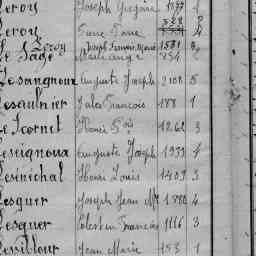 Leroy Joseph Grégoire 1977 1
Leroy Pierre 4
Leroy Joseph François Marie 1581 3
Le Sage 254
Lesangnoux Auguste Joseph 2108 5
Lesaulnier Jules François 188 1
Le Scornet Henri 1262 3
Leseignoux Auguste Joseph 1933 4
Lesénéchal Henri Louis 1409 3
Lesquer Joseph Jean Mie 1780 4
Lesquer Célestin François 1116 3
Jean Marie 153 1